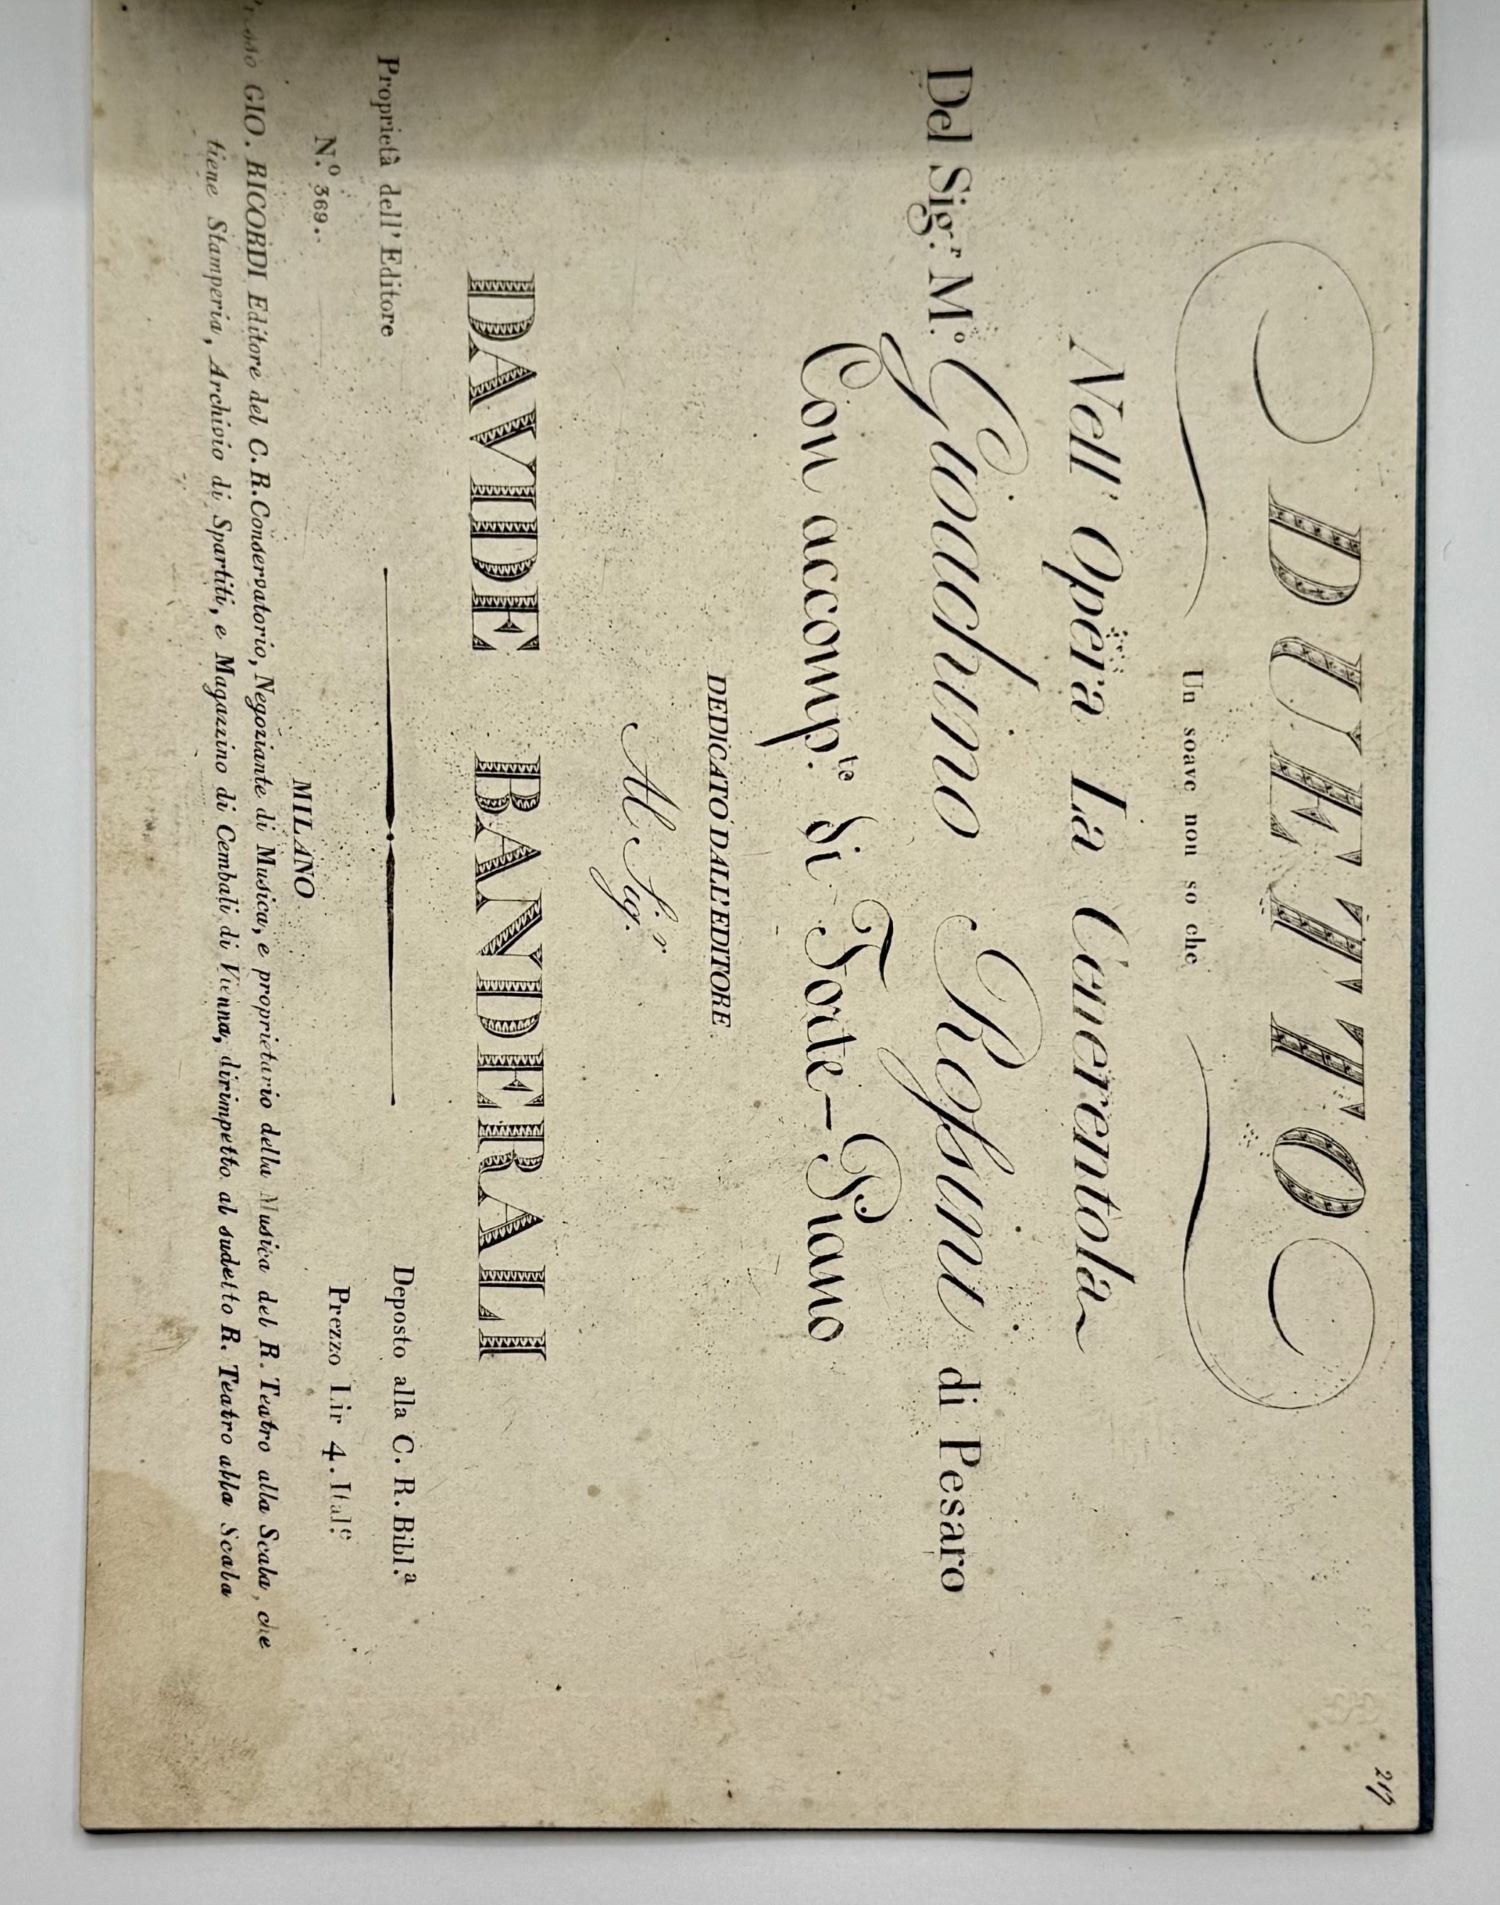 217
DUETTO
Un soave non so che
Nell' Opera La Cenerentola
Del Sig.r M.o Gioachino Rossini di Pesaro
Con accomp.te di Forte-Piano
DEDICATO DALL'EDITORE
Al Sig.r
DAVIDE BANDERALI
Proprietà dell' Editore
Deposto alla C. R. Bibl.a
N.o 369.
Prezzo Lir 4. Ital.e
MILANO
Presso GIO. RICORDI Editore del C. R. Conservatorio, Negoziante di Musica, e proprietario della Musica del R. Teatro alla Scala, che
tiene Stamperia, Archivio di Spartiti, e Magazzino di Cembali di Vienna, dirimpetto al sudetto R. Teatro alla Scala